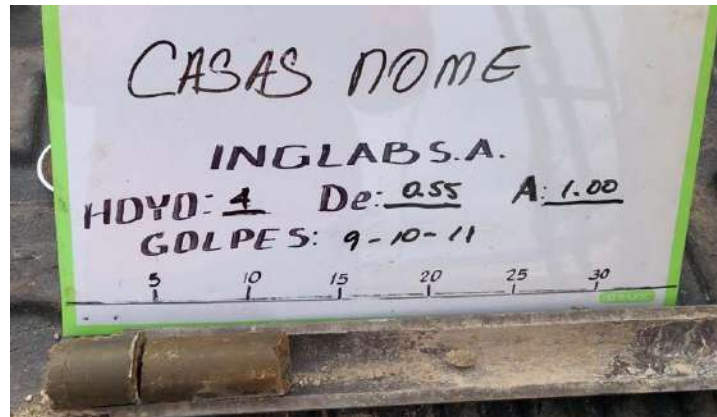 CASAS NOME
INGLAB S.A.
HOYO: 4 De: 0.55 A: 1.00
GOLPES: 9-10-11
5 10 15 20 25 30